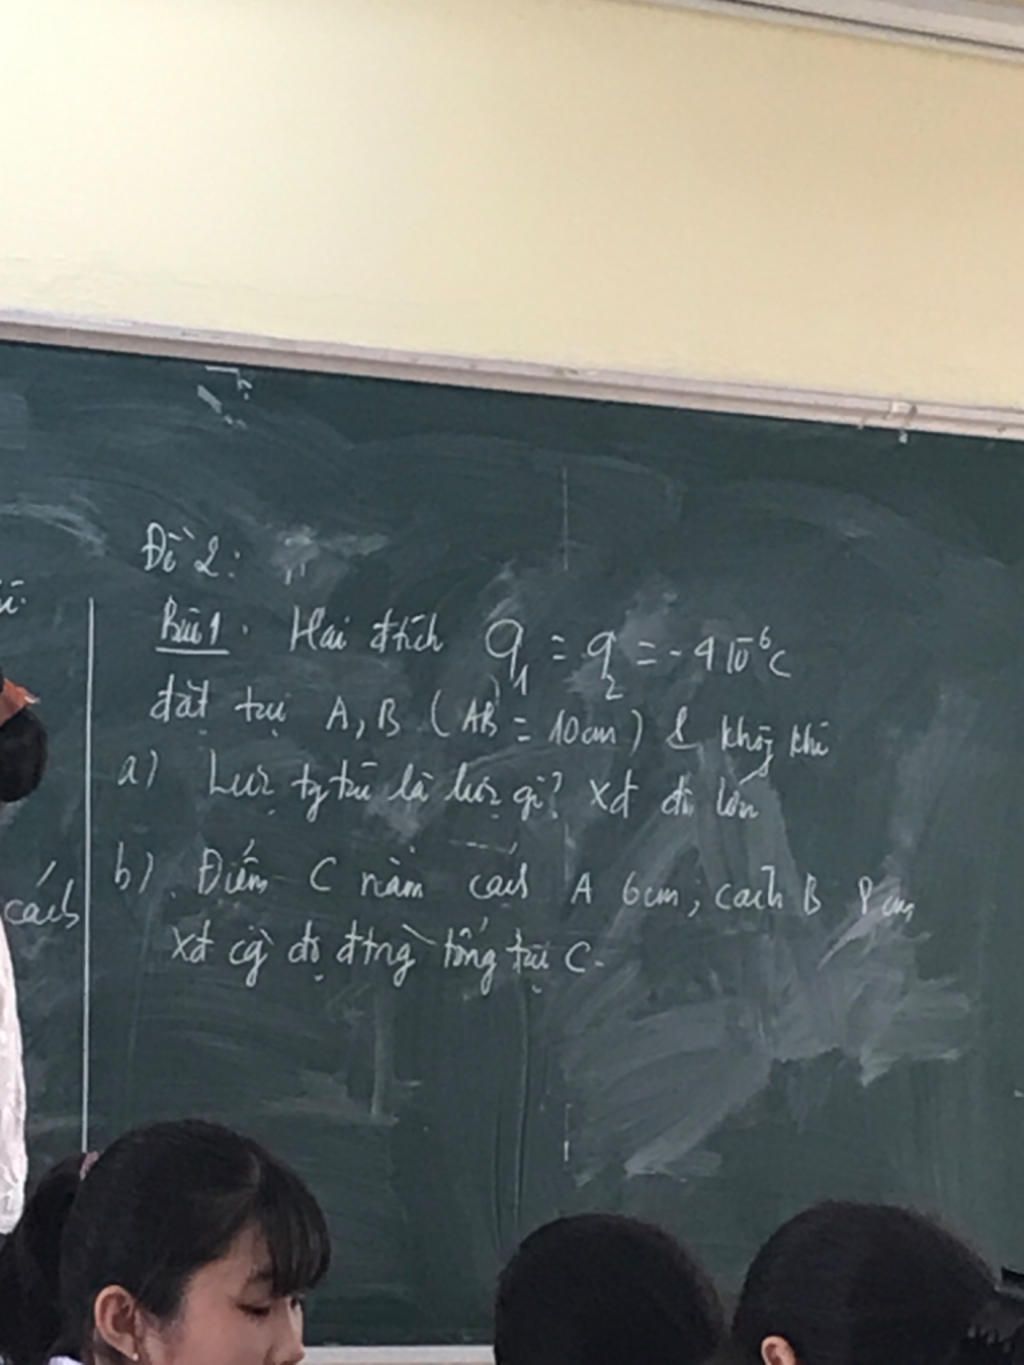 Đề 2:
Bài 1. Hai đtích q1 = q2 = -4 10^-6 C
đặt tại A, B (AB = 10cm) không khí
a) Lực tg tác là lực gì? Xđ độ lớn
b) Điểm C nằm cách A 6cm; cách B 8cm
cách
Xđ cg độ đtrg tổng tại C.